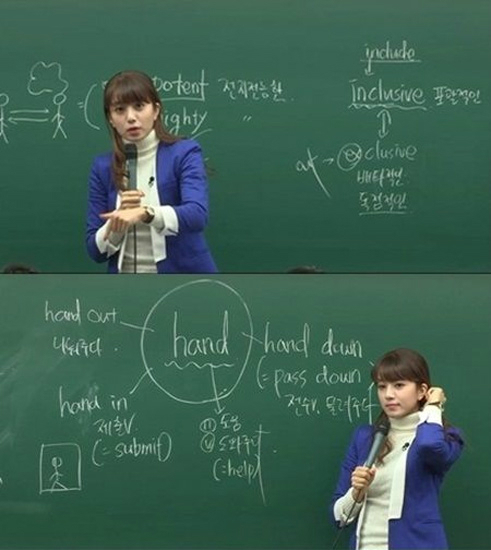 include
potent 전지전능한
Inclusive 포괄적인
ighty "
exclusive
배타적인
독점적인
hand out
나눠주다.
hand
hand down
(= pass down
전수, 물려주다
hand in
제출V
(=submit)
ⓝ 도움
ⓥ 도와주다
(=help)